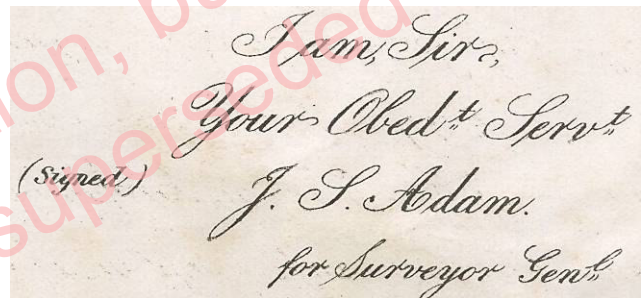 I am, Sir,
Your Obedt Servt
(Signed)
J. S. Adam.
for Surveyor Genl
superseded